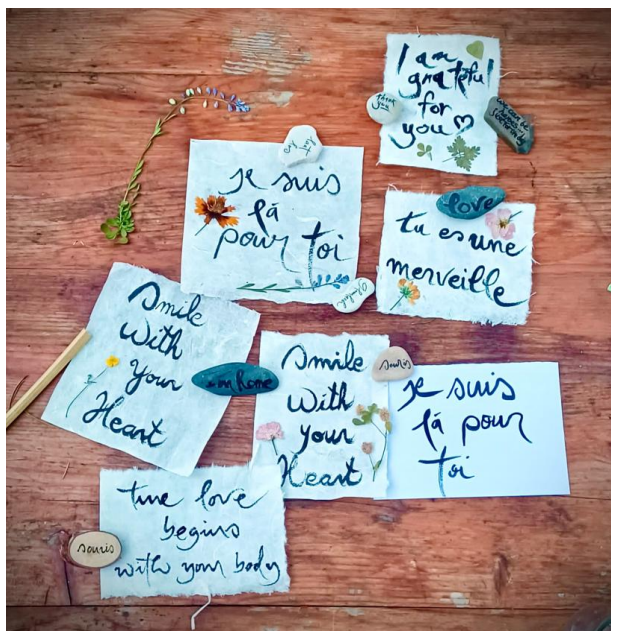 I am
grateful
for
you
thank
you
je suis
là
pour toi
love
tu es une
merveille
Smile
With
your
Heart
I am Home
Smile
With
your
Heart
souris
je suis
là pour
toi
true love
begins
with your body
souris